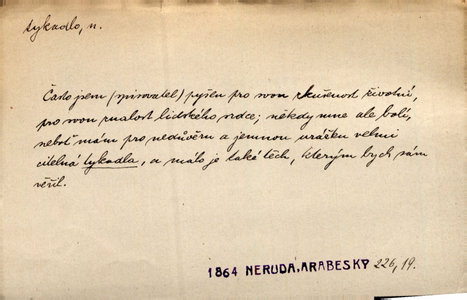 tykadlo, n.
Často jsem (spisovatel) pyšen pro svou zkušenost životní,
pro svou znalost lidského srdce; někdy mne ale bolí,
neboť mám pro nedůvěru a jemnou urážku velmi
citelná tykadla, a málo je také těch, kterým bych sám
věřil.
1864 NERUDA, ARABESKY 226, 19.